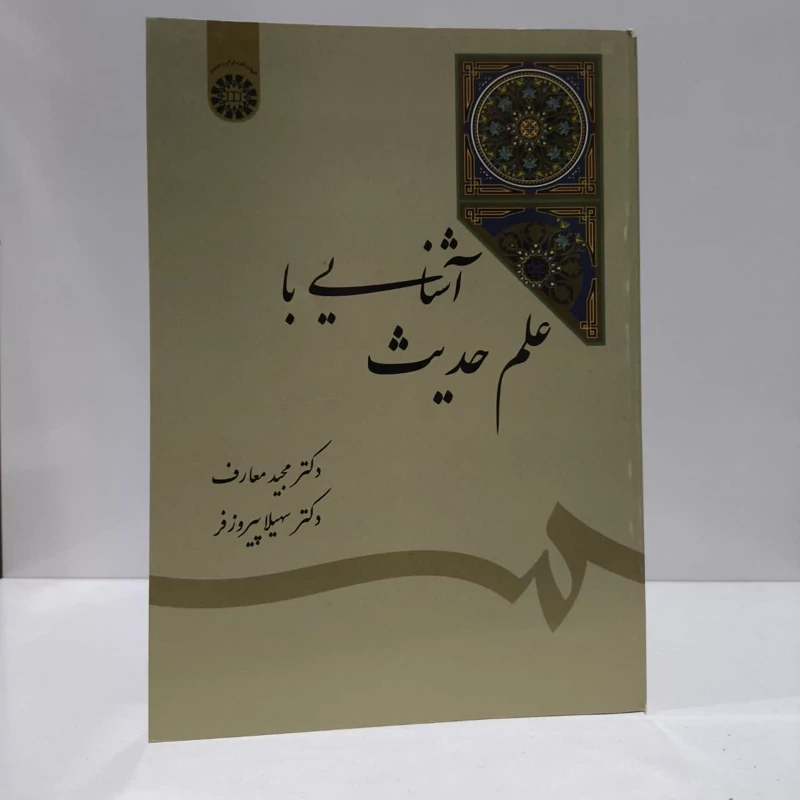 آشنایی با
علم حدیث
دکتر مجید معارف
دکتر سهیلا پیروزفر